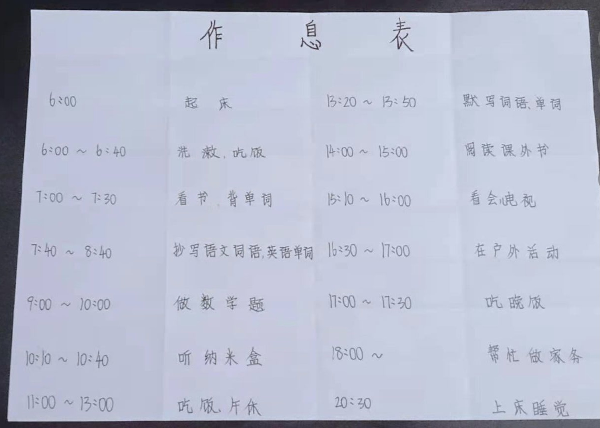 作息表
6:00 起床 13:20~13:50 默写词语、单词
6:00~6:40 洗漱、吃饭 14:00~15:00 阅读课外书
7:00~7:30 看书、背单词 15:10~16:00 看会电视
7:40~8:40 抄写语文词语、英语单词 16:30~17:00 在户外活动
9:00~10:00 做数学题 17:00~17:30 吃晚饭
10:10~10:40 听纳米盒 18:00~ 帮忙做家务
11:00~13:00 吃饭、午休 20:30 上床睡觉